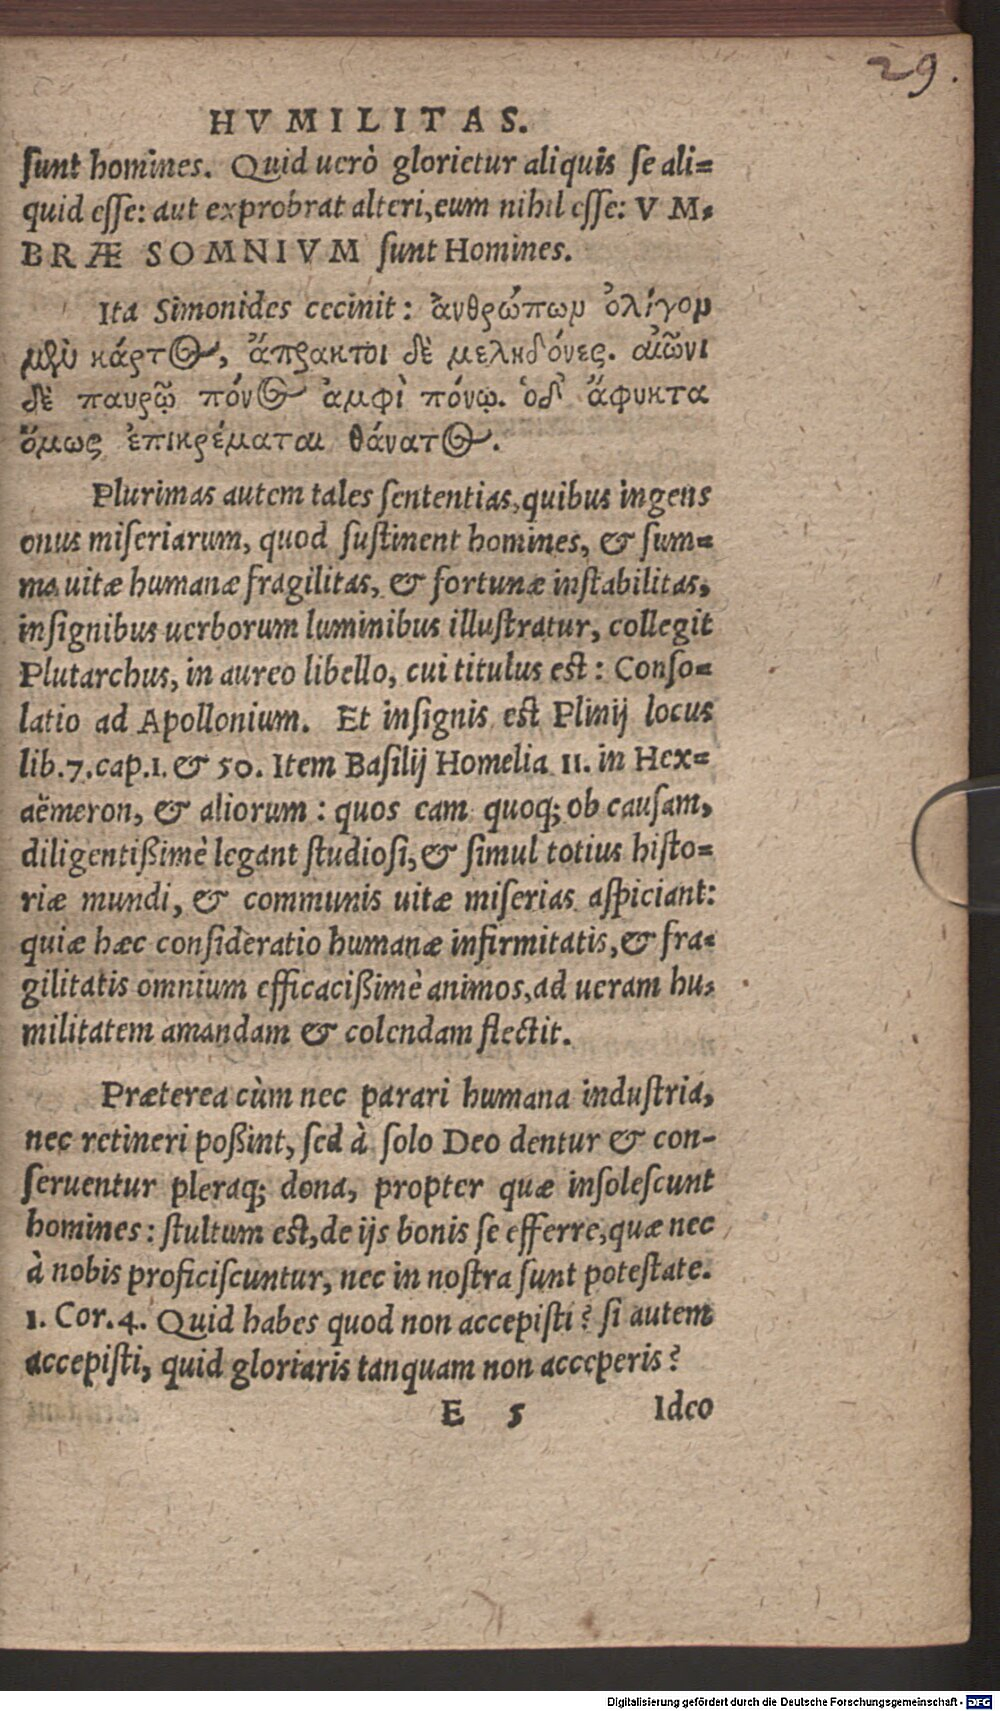 29.
HVMILITAS.
sunt homines. Quid uerò glorietur aliquis se ali=
quid esse: aut exprobrat alteri, eum nihil esse: V M=
BRÆ SOMNIVM sunt Homines.
Ita Simonides cecinit: ἀνθρώπων ὀλίγον
μὲν κάρτος, ἄπρακτοι δὲ μεληδόνες. αἰῶνι
δὲ παυρῷ πόνος ἀμφὶ πόνῳ. ὁδ' ἄφυκτα
ὅμως ἐπικρέμαται θάνατος.
Plurimas autem tales sententias, quibus ingens
onus miseriarum, quod sustinent homines, & sum=
ma uitæ humanæ fragilitas, & fortunæ instabilitas,
insignibus uerborum luminibus illustratur, collegit
Plutarchus, in aureo libello, cui titulus est: Conso=
latio ad Apollonium. Et insignis est Plinij locus
lib.7.cap.1. & 50. Item Basilij Homelia 11. in Hex=
aëmeron, & aliorum: quos eam quoq; ob causam,
diligentißimè legant studiosi, & simul totius histo=
riæ mundi, & communis uitæ miserias aspiciant:
quiæ hæc consideratio humanæ infirmitatis, & fra=
gilitatis omnium efficacißimè animos, ad ueram hu=
militatem amandam & colendam flectit.
Præterea cùm nec parari humana industria,
nec retineri poßint, sed à solo Deo dentur & con-
seruentur pleraq; dona, propter quæ insolescunt
homines: stultum est, de ijs bonis se efferre, quæ nec
à nobis proficiscuntur, nec in nostra sunt potestate.
1. Cor. 4. Quid habes quod non accepisti? si autem
accepisti, quid gloriaris tanquam non acceperis?
E 5 Ideo
Digitalisierung gefördert durch die Deutsche Forschungsgemeinschaft - DFG